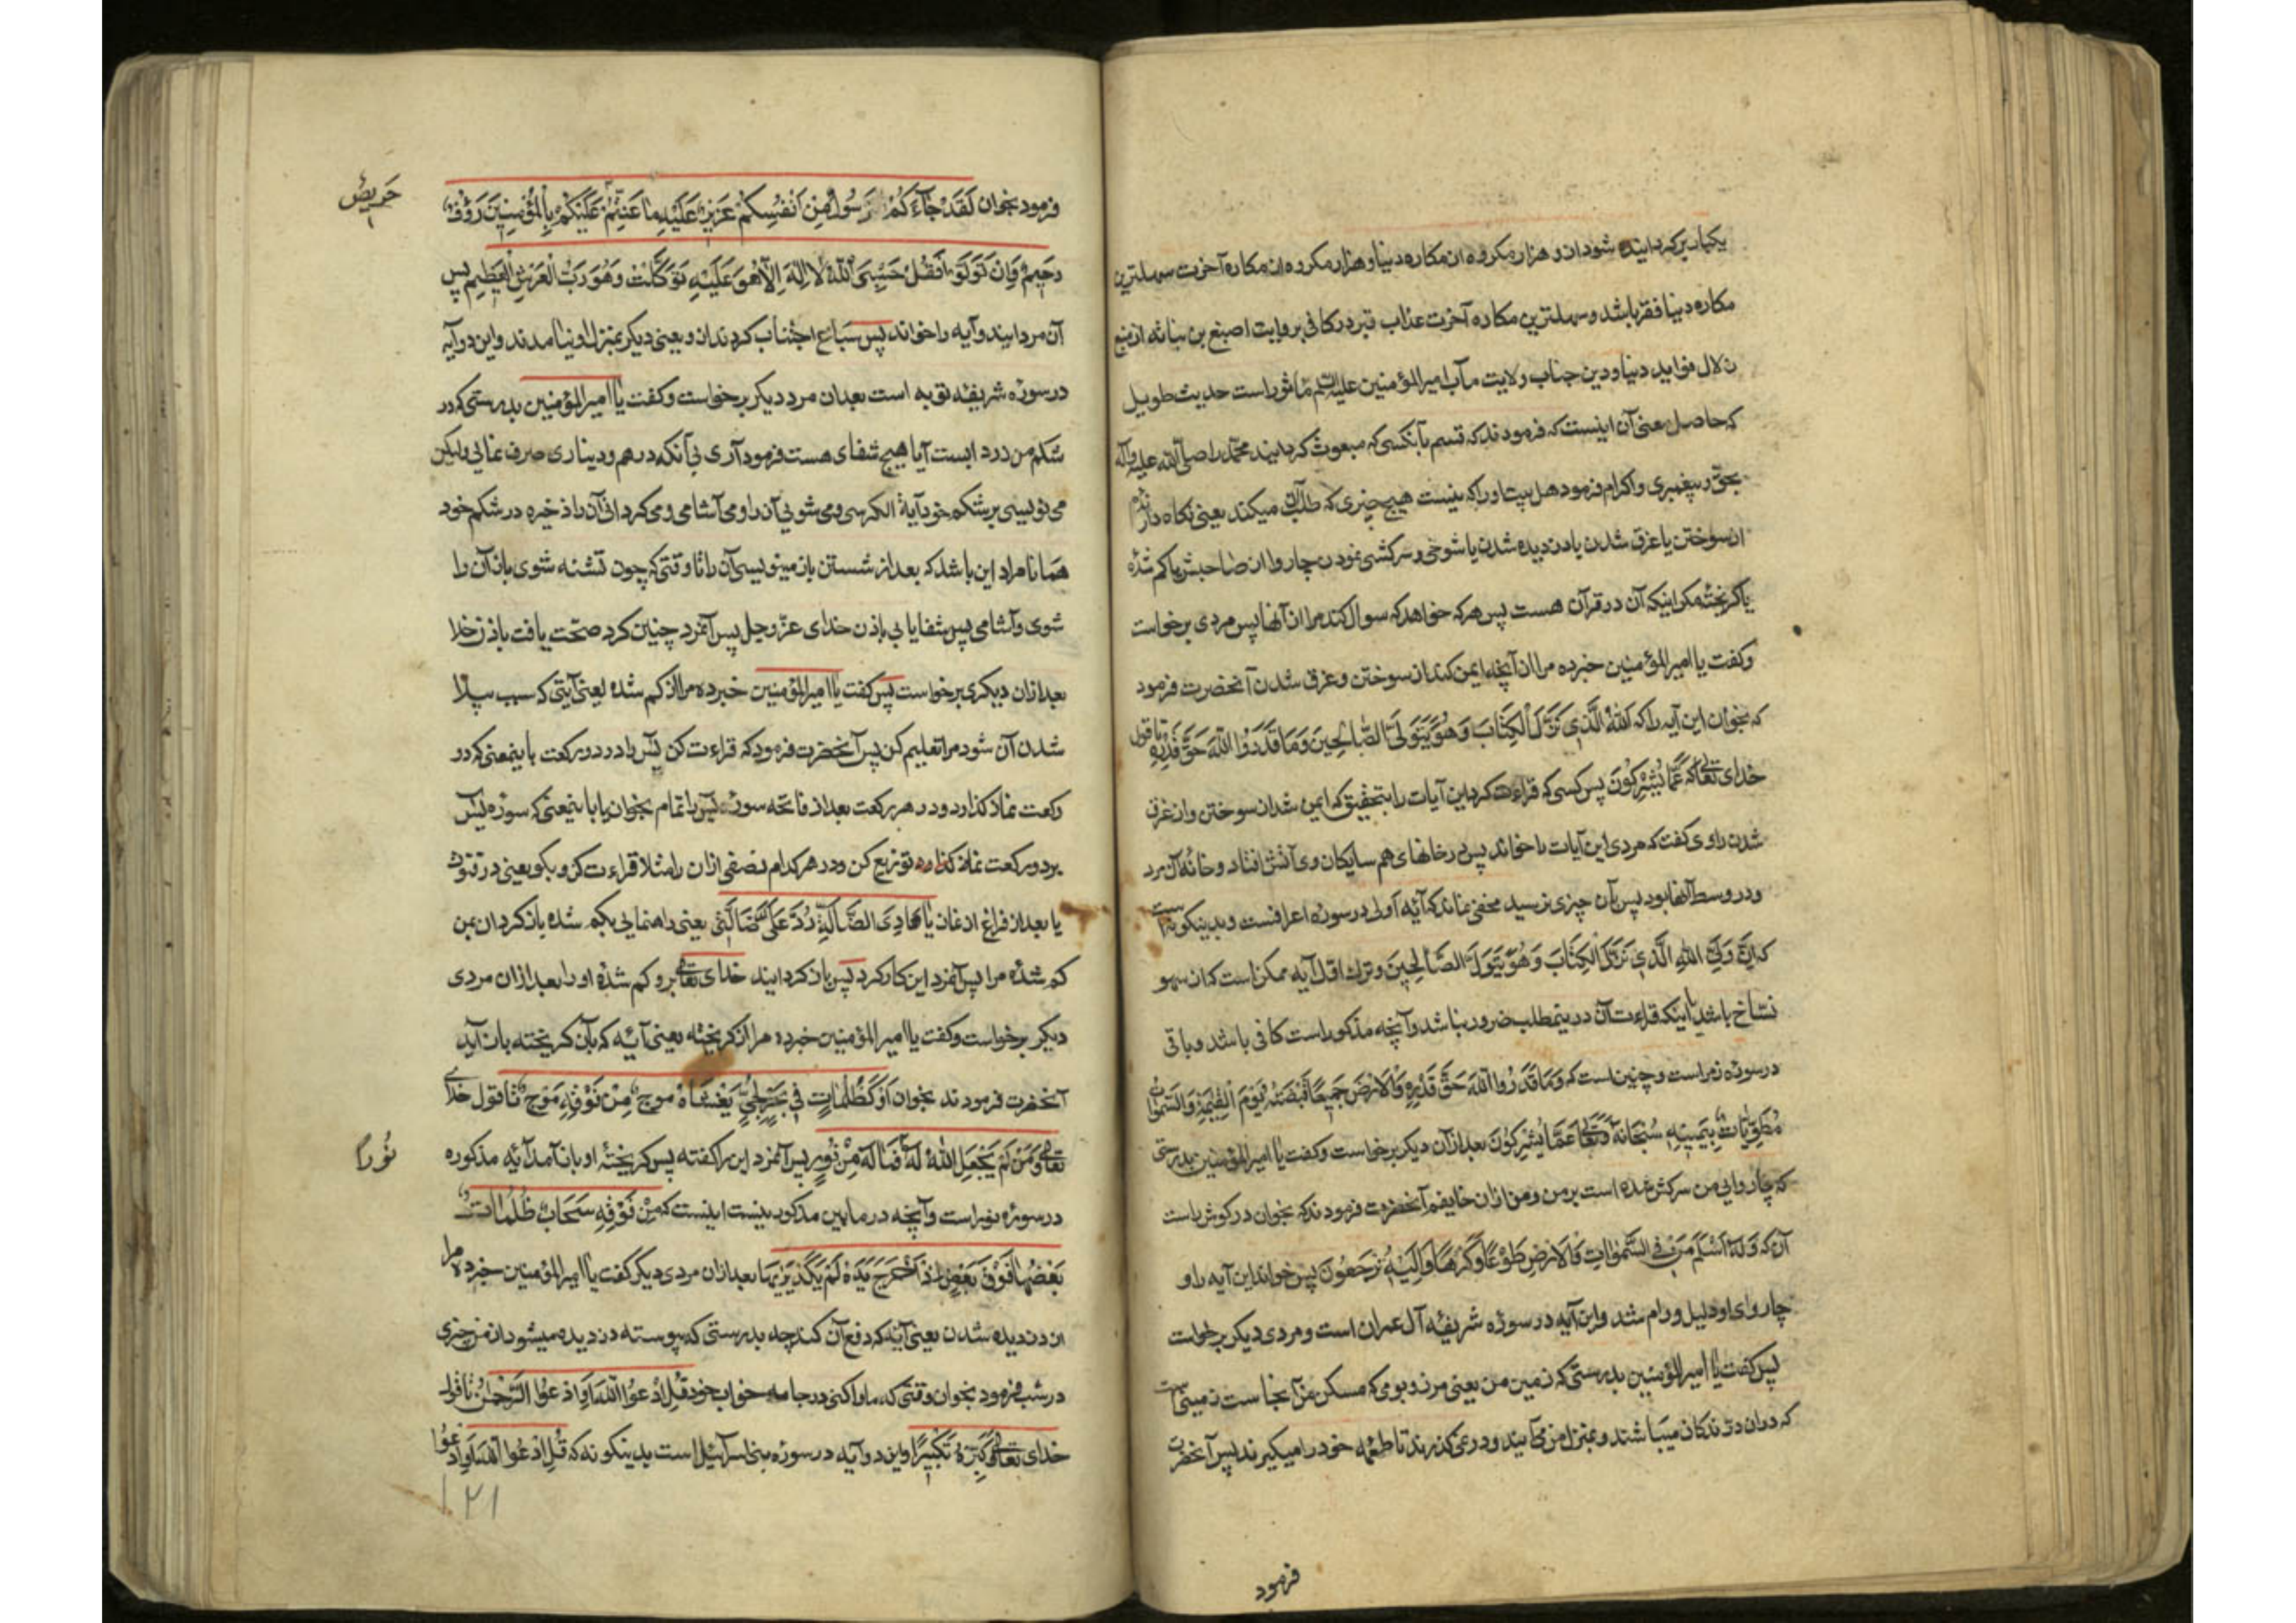 یکبار برکردانیده شود ازو هزار مکروه از مکاره دنیا و هزار مکروه از مکاره آخرت سهلترین
مکاره دنیا فقر باشد و سهلترین مکاره آخرت عذاب قبر در کافی بروایت اصبغ بن نباته از منبع
زلال فواید دنیا و دین جناب ولایت مآب امیرالمؤمنین علیه‌السلم ماثور است حدیث طویل
که حاصل معنی آن اینست که فرمودند که قسم بآنکسی که مبعوث کردانید محمد را صلی الله علیه وآله
بحق و پیغمبری و اکرام فرمود اهل بیت او را که نیست هیچ چیزی که طلب آن میکند یعنی نکاه دارنده
از سوختن یا غرق شدن یا دزدیده شدن یا شوخی و سرکشی نمودن چاروا از صاحبش یا کم شده
یا کریخته مکر اینکه آن در قرآن هست پس هر که خواهد که سوال کند مرا از آنها پس مردی برخواست
وکفت یا امیرالمؤمنین خبر ده مرا از آنچه ایمن کند از سوختن و غرق شدن آنحضرت فرمود
که بخوان این آیه را که اللَّهُ الَّذِی نَزَّلَ الْکِتَابَ وَهُوَ یَتَوَلَّی الصَّالِحِینَ وَمَا قَدَرُوا اللَّهَ حَقَّ قَدْرِهِ تا قول
خدای تعالی که عَمَّا یُشْرِکُونَ پس کسی که قراءت کرد این آیات را بتحقیق که ایمن شد از سوختن و از غرق
شدن راوی کفت که مردی این آیات را خواند پس در خانهای هم سایکان وی آتش افتاد و خانه آن مرد
ودر وسط آنها بود پس بآن چیزی نرسید مخفی نماند که آیه اولی در سوره اعرافست و بدینکونه است
که اِنَّ وَلِیَّ اللَّهُ الَّذِی نَزَّلَ الْکِتَابَ وَهُوَ یَتَوَلَّی الصَّالِحِینَ و ترك اول آیه ممکن است که از سهو
نساخ باشد یا اینکه قراءت آن در ینمطلب ضرور نباشد و آنچه مذکور است کافی باشد و باقی
در سوره زمر است و چنین است که وَمَا قَدَرُوا اللَّهَ حَقَّ قَدْرِهِ وَالْاَرْضُ جَمِیعًا قَبْضَتُهُ یَوْمَ الْقِیمَةِ وَالسَّمٰوَاتُ
مَطْوِیَّاتٌ بِیَمِینِهِ سُبْحَانَهُ وَتَعَالی عَمَّا یُشْرِکُونَ بعد از آن دیکر برخواست وکفت یا امیرالمؤمنین بدرستی
که چاروایی من سرکش شده است بر من و من ازان خایفم آنحضرت فرمودند که بخوان در کوش راست
آن که وَلَهُ اَسْلَمَ مَنْ فِی السَّمٰوَاتِ وَالْاَرْضِ طَوْعًا وَکَرْهًا وَاِلَیْهِ تُرْجَعُونَ پس خواند این آیه را و
چاروای او ذلیل و رام شد و این آیه در سوره شریفه آل عمران است و مردی دیکر برخواست
پس کفت یا امیرالمؤمنین بدرستی که زمین من یعنی مرز و بومی که مسکن من آنجاست زمینی است
که دران درندکان میباشند و بمنزل من می‌آیند و در نمی‌کذرند تا طعمه خود را میکیرند پس آنحضرت
فرمود
فرمود بخوان لَقَدْ جَآءَکُمْ رَسُولٌ مِنْ اَنْفُسِکُمْ عَزِیزٌ عَلَیْهِ مَا عَنِتُّمْ عَلَیْکُمْ بِالْمُؤْمِنِینَ رَؤُفٌ
حَرِیصٌ
رَحِیمٌ فَاِنْ تَوَلَّوْا فَقُلْ حَسْبِیَ اللَّهُ لَا اِلٰهَ اِلَّا هُوَ عَلَیْهِ تَوَکَّلْتُ وَهُوَ رَبُّ الْعَرْشِ الْعَظِیمِ پس
آن مرد این دو آیه را خواند پس سباع اجتناب کردند ازو یعنی دیکر بمنزل او نیامدند و این دو آیه
در سوره شریفه توبه است بعد ازان مرد دیکر برخواست وکفت یا امیرالمؤمنین بدرستی که در
شکم من زرد ابست آیا هیچ شفای هست فرمود آری بی آنکه درهم و دیناری صرف نمایی ولیکن
می نویسی بر شکم خود آیة الکرسی و می شویی آن را و می آشامی و می کردانی آن را ذخیره در شکم خود
همانا مراد این باشد که بعد از شستن باز مینویسی آن را تا وقتی که چون تشنه شوی باز آن را
شوی و آشامی پس شفا یابی باذن خدای عزّ وجل پس آنمرد چنین کرد صحّت یافت باذن خدا
بعد ازان دیکری برخواست پس کفت یا امیرالمؤمنین خبر ده مرا از کم شده یعنی آیتی که سبب پیدا
شدن آن شود مرا تعلیم کن پس آنحضرت فرمود که قراءت کن یس را در دو رکعت باینمعنی که در
رکعت نماز کذارد و در هر رکعت بعد از فاتحه سوره یس را تمام بخوان یا باینمعنی که سوره یس
بر دو رکعت نماز کذارده توزیع کن و در هر کدام نصفی ازان را مثلا قراءت کن و بکو یعنی در قنوت
یا بعد از فراغ از نماز یَا هَادِیَ الضَّالَّةِ رُدَّ عَلَیَّ ضَالَّتِی یعنی راهنمایی بکم شده باز کردان بمن
کم شدهٔ مرا پس آنمرد این کار کرد پس باز کردانید خدای تعالی برو کم شدهٔ او را بعد ازان مردی
دیکر برخواست وکفت یا امیرالمؤمنین خبر ده مرا از کریخته یعنی آیهٔ که بآن کریخته باز آید
آنحضرت فرمودند بخوان اَوْ کَظُلُمَاتٍ فِی بَحْرٍ لُجِّیٍّ یَغْشَاهُ مَوْجٌ مِنْ فَوْقِهِ مَوْجٌ تا قول خدای
تعالی وَمَنْ لَمْ یَجْعَلِ اللَّهُ لَهُ فَمَا لَهُ مِنْ نُورٍ پس آنمرد این را کفته پس کریختهٔ او باز آمد آیهٔ مذکوره
نُورًا
در سوره نور است و آنچه در مابین مذکور نیست اینست که مِنْ فَوْقِهِ سَحَابٌ ظُلُمَاتٌ
بَعْضُهَا فَوْقَ بَعْضٍ اِذَا اَخْرَجَ یَدَهُ لَمْ یَکَدْ یَرٰیهَا بعد ازان مردی دیکر کفت یا امیرالمؤمنین خبر ده مرا
از دزدیده شدن یعنی آیهٔ که دفع آن کند چه بدرستی که پیوسته دزدیده میشود از من چیزی
در شب فرمود بخوان وقتی که ماوا کنی در جامه خواب خود قُلِ ادْعُوا اللَّهَ اَوِ ادْعُوا الرَّحْمٰنَ تا قول
خدای تعالی وَکَبِّرْهُ تَکْبِیرًا و این دو آیه در سوره بنی اسرآئیل است بدینکونه که قُلِ ادْعُوا اللَّهَ اَوِ ادْعُوا
۱۲۱